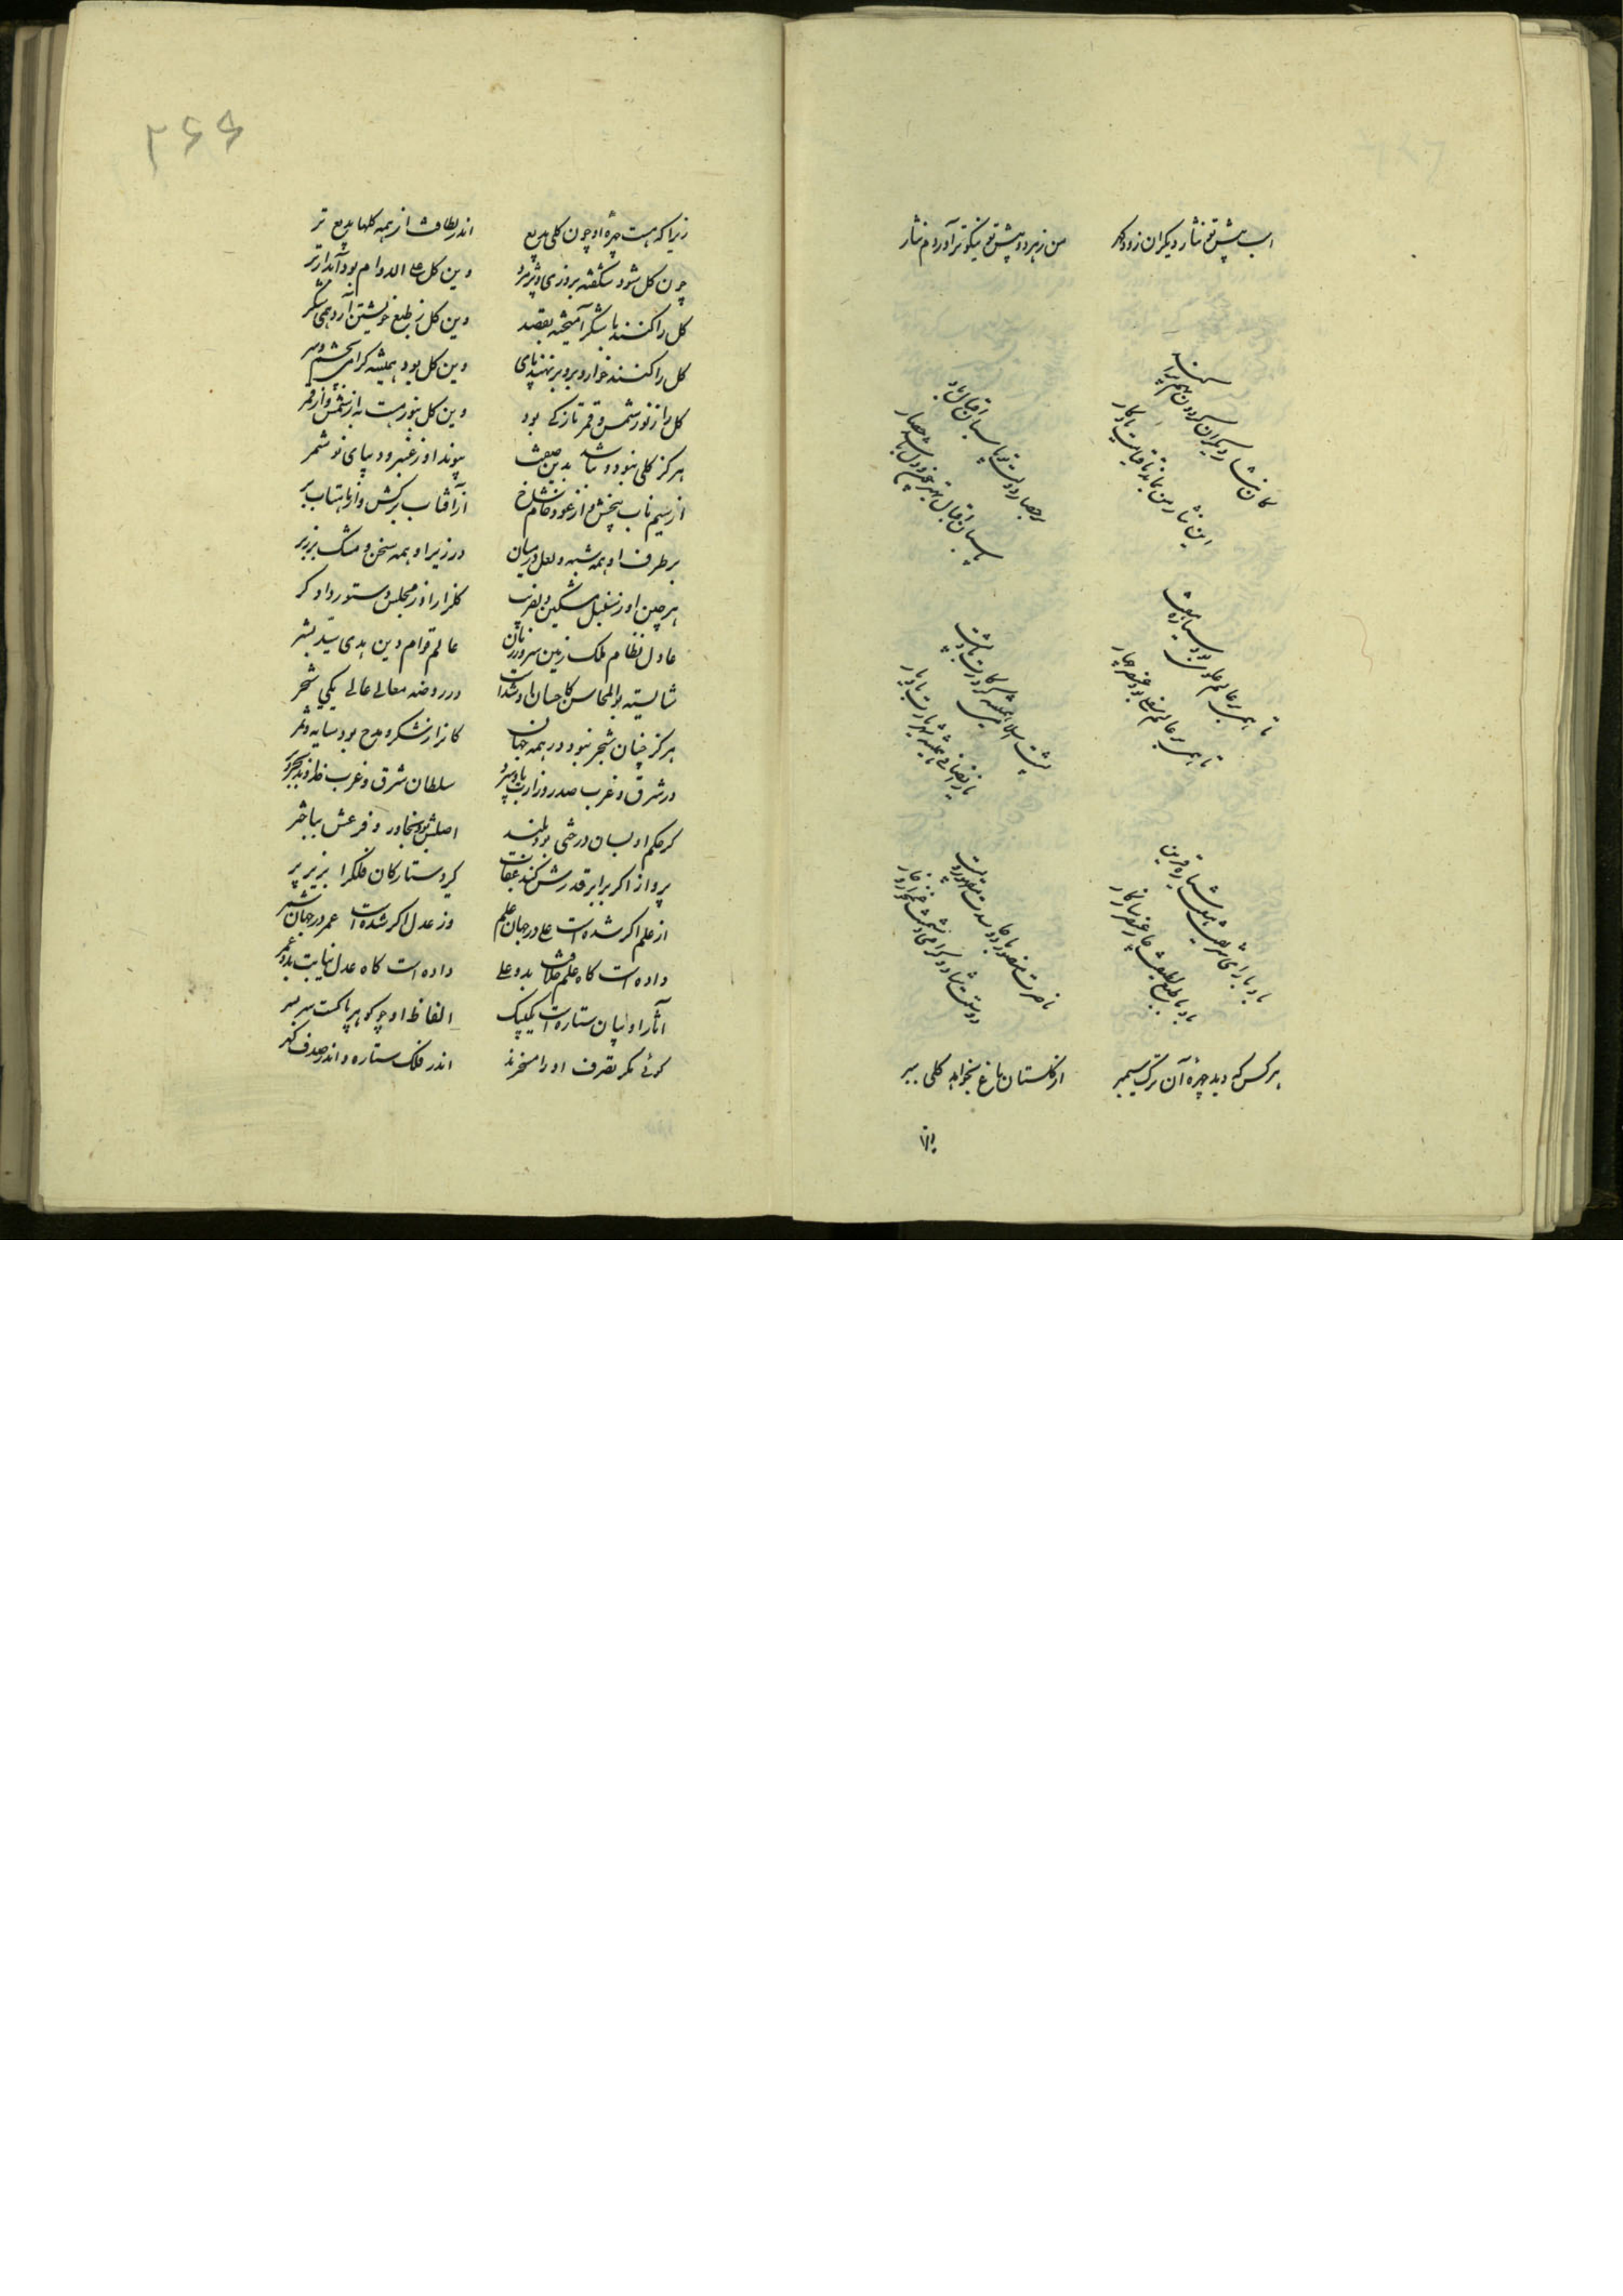 است پیش تو نثار دیکران زود کهر
من زبهر دو پیش تو نیکوتر آوردم نثار
کان نثار دیکران کردون بهم
این نثار من بماند تا قیامت یادکار
پاسبان اقبال
تا همی بر عالم علوی بود سیاره هفت
تا همی بر عالم سفلی بود عنصر چهار
پشت اسلام
باد با رای شریفش هفت سیاره قرین
باد با طبع لطیفش چار عنصر سازکار
ناصرت منصور باد و
دوستت شاد و کرامی دشمنت غمخوار و خوار
هر کس که دید چهرهٔ آن ترک سیمبر
از کلستان باغ نخواهد کلی ببر
زیرا
۲۶۶
زیرا که هست چهرهٔ او چون کلی بدیع
اندر لطافت از همه کلها بدیع تر
چون کل شود شکفته بروزی و پژمرد
وین کل علی الدوام بود آبدارتر
کل را کنند با شکر آمیخته بقصد
وین کل ز طبع خویشتن آرد همی شکر
کل را کنند خوار و بروبر نهند پای
وین کل بود همیشه کرامی بچشم و سر
کل را ز نور شمس و قمر تازکی بود
وین کل بنور هست به از شمس و از قمر
هرکز کلی نبود و نباشد بدین صفت
پیوند او ز عنبر و دیبای شوشتر
از سیم ناب بیخش و از عود خام شاخ
از آفتاب برکش و از ماهتاب بر
بر طرف او همه شبه و لعل در میان
در زیر او همه سخن و مشک بر زبر
هرچین او ز سنبل مشکین
کلزار او ز مجلس دستور دادکر
عادل نظام ملک زمین سرور زمان
عالم قوام دین هدی سید بشر
شایسته بوالمحاسن کاحسان او شدست
در روضه معالی عالی یکی شجر
هرکز چنان شجر نبود در همه جهان
کانرا ز شکر و مدح بود سایه و ثمر
در شرق و غرب صدر وزارت بدو سپرد
سلطان شرق و غرب خداوند بحر و بر
کر حکم او بسان درختی بود بلند
اصلش بود بخاور و فرعش بباختر
پرواز اکر برابر قدرش کند عقاب
کیرد ستارکان فلک را بزیر پر
از علم اکر شده است علی در جهان علم
وز عدل اکر شده است عمر در جهان سمر
داده است کاه علم خلافت بدو علی
داده است کاه عدل نیابت بدو عمر
آثار او بسان ستاره است یک بیک
الفاظ او چو کوهر پاکست سر بسر
کوئی مکر تصرف او را مسخرند
اندر فلک ستاره و اندر صدف کهر